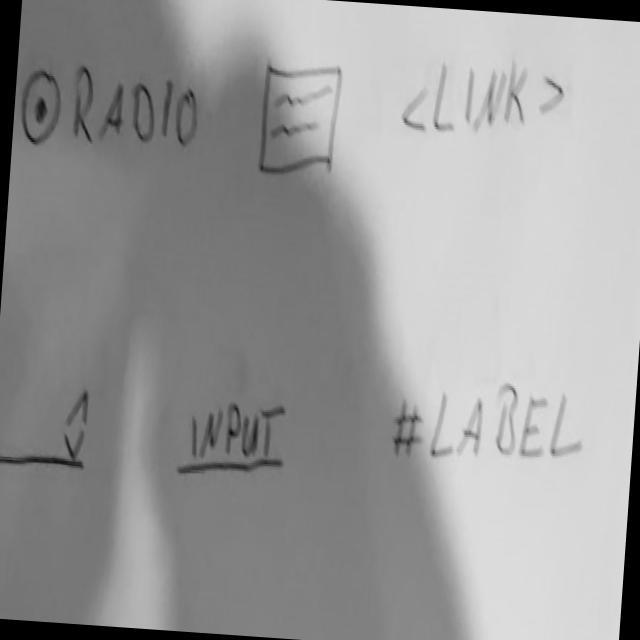 RADIO <LINK>
INPUT #LABEL